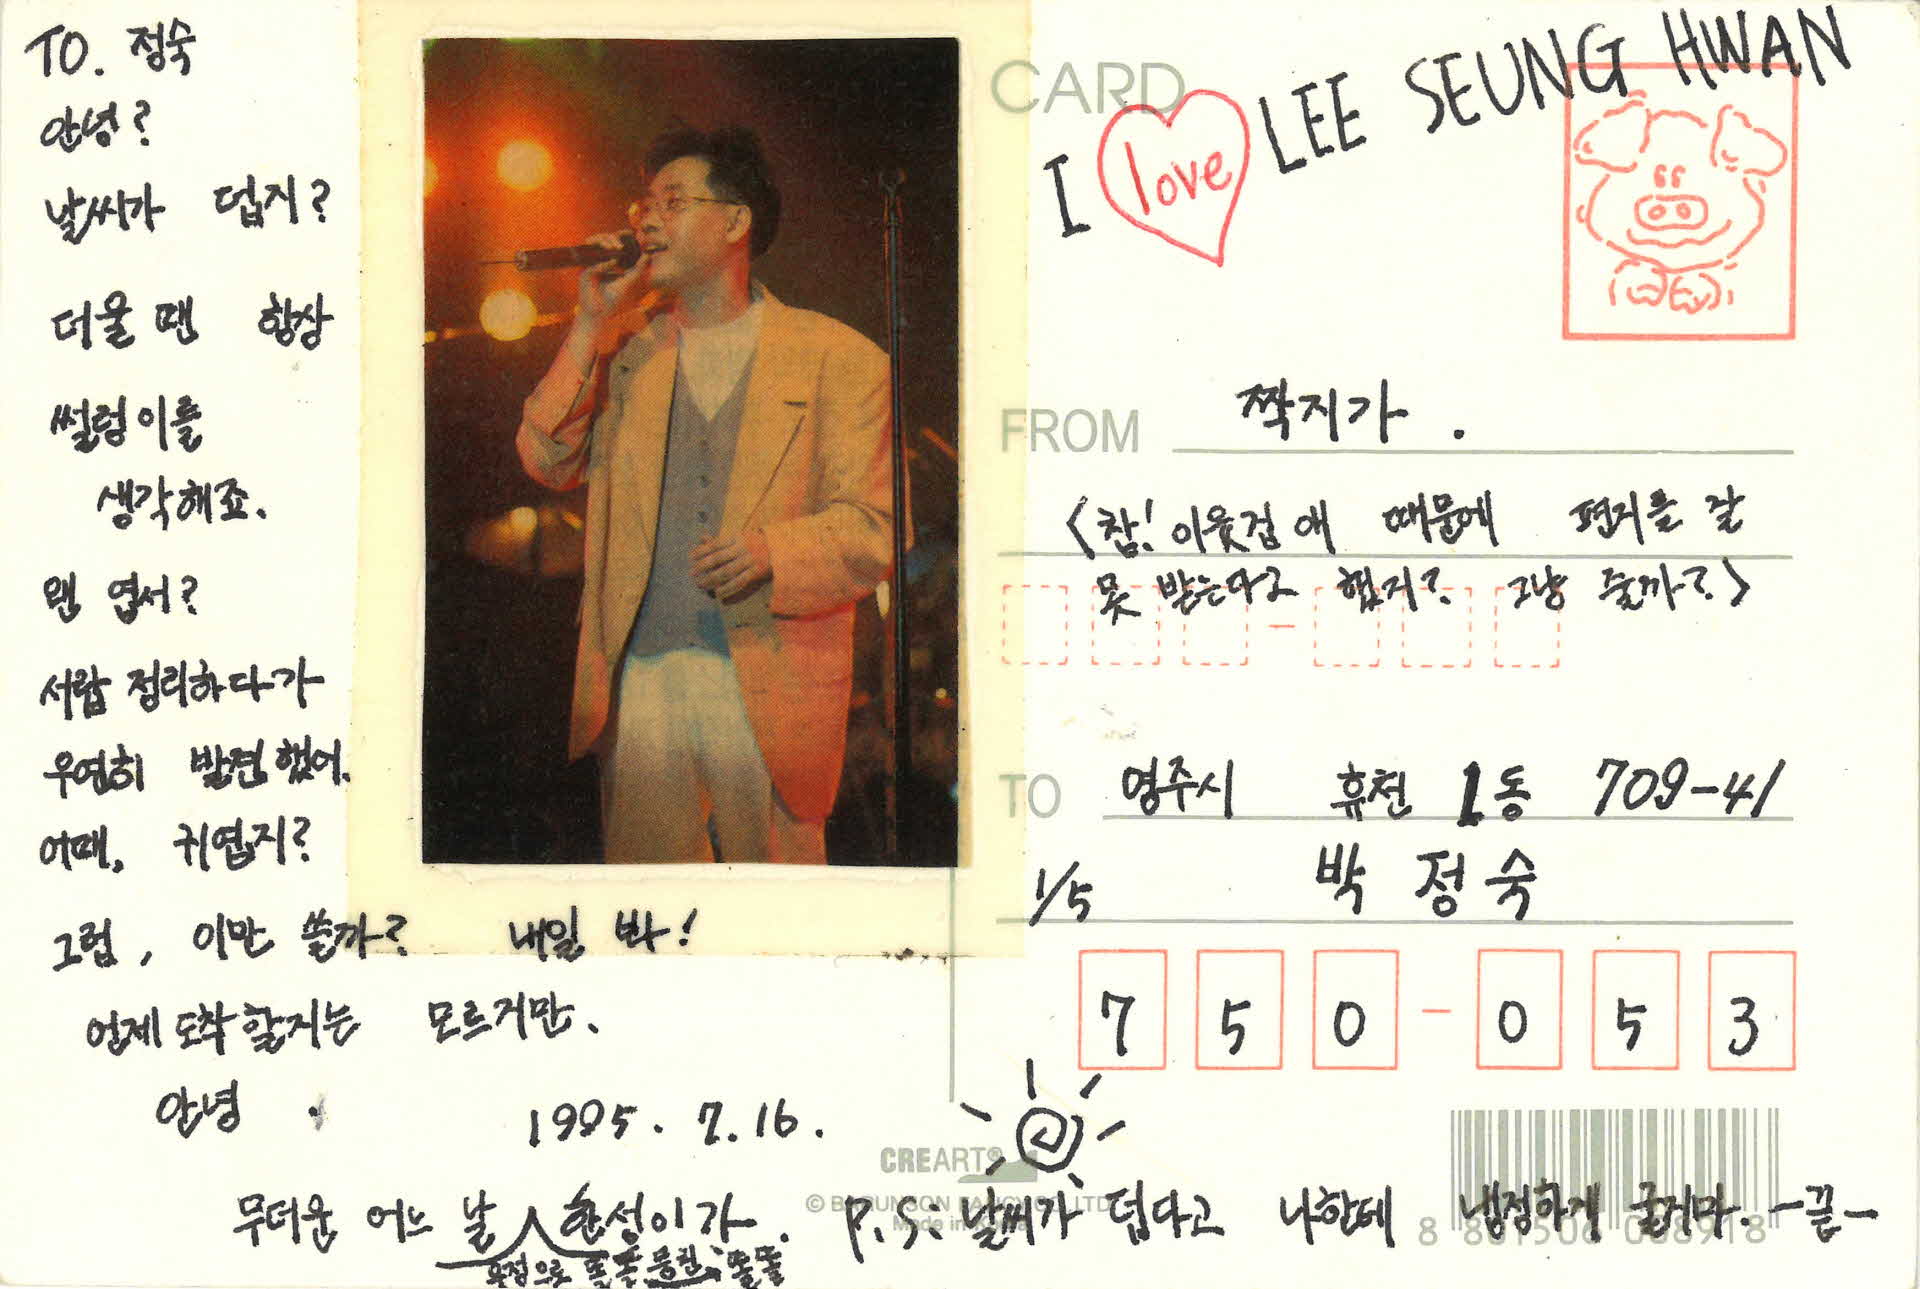 TO. 정숙
안녕?
날씨가 덥지?
더울 땐 항상
썰렁이를
생각해죠.
왠 엽서?
서랍 정리하다가
우연히 발견했어.
어때, 귀엽지?
그럼, 이만 쓸까? 내일 봐!
언제 도착할지는 모르지만.
안녕.
1995. 7. 16.
무더운 어느 날 한성이가.
우정으로 똘똘 뭉친 똘똘
CARD
I love LEE SEUNG HWAN
FROM 짝지가.
<참! 이웃집 애 때문에 편지를 잘
못 받는다고 했지? 그냥 줄까?>
TO 영주시 휴천 1동 709-41
1/5 박정숙
750-053
CREARTS
© BARUNSON FANCY CO. LTD
Made in
P.S: 날씨가 덥다고 나한테 냉정하게 굴지마. -끝-
8 801506 008918